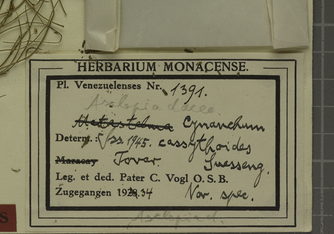 HERBARIUM MONACENSE.
Pl. Venezuelenses Nr. 1391.
Asclepiadacea
Metastelma Cynanchum
Determ.: cassythoides
Maracay Tovar. Suesseng.
Leg. et ded. Pater C. Vogl O. S. B.
Zugegangen 19 34 Nov. spec.
Asclepiad.